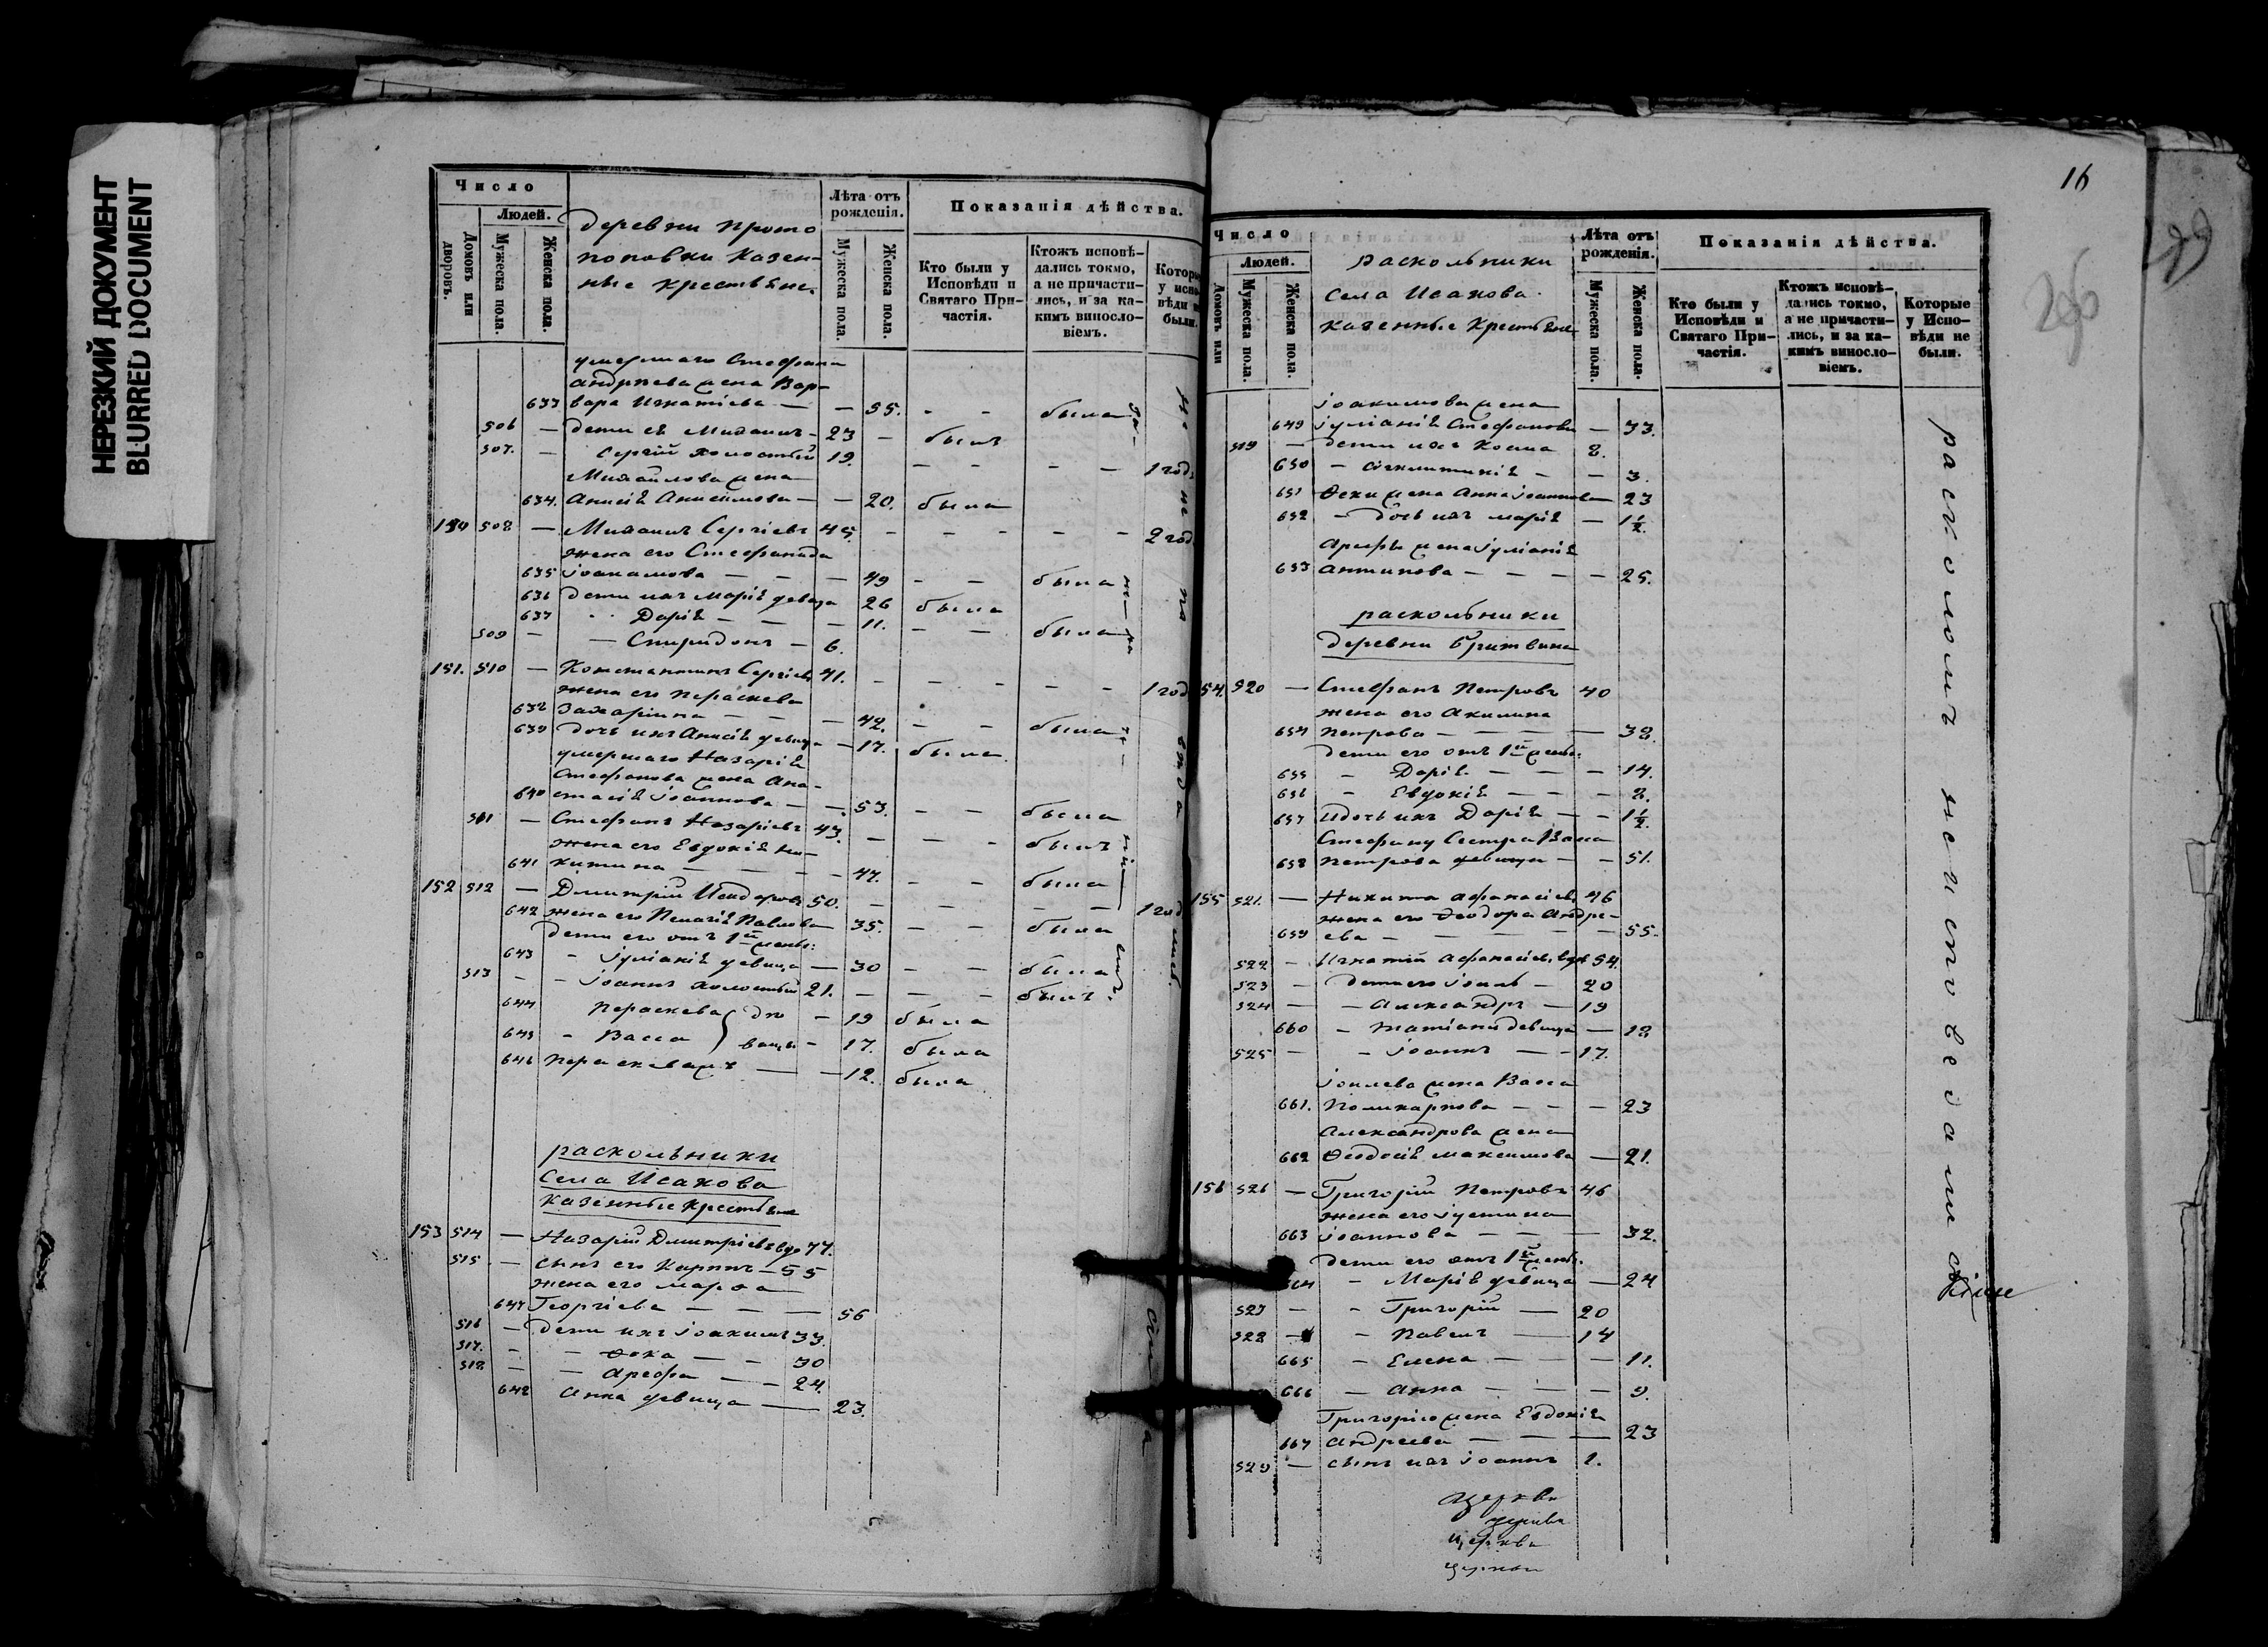 НЕРЕЗКИЙ ДОКУМЕНТ
BLURRED DOCUMENT
Число
Людей.
Домовъ или дворовъ.
Мужеска пола.
Женска пола.
деревни Прото
поповки Казен-
ные крестьяне.
Лѣта отъ рожденія.
Мужеска пола
Женска пола.
Показанія дѣйства.
Кто были у Исповѣди и Святаго Причастія.
Ктожъ исповѣдались токмо, а не причастились, и за какимъ винословіемъ.
умершаго Стефана
Андреева жена Вар-
633 вара Игнатіева — — 55. - - была
506 — дети ея Михаилъ - 23 — былъ
507. — Сергій холостый 19. - - - - 1 годъ
Михайлова жена
634. Анисія Анисимова — — 20. была
150 508 — Михаилъ Сергіевъ 45. - - - - 2 год
жена его Стефанида
635 Іоакимова — — — 49 - - была
636 дети ихъ Марія девица 26 была
637 Дарія — — — 11. - - была
509 — — Спиридонъ — 6.
151. 510 — Константинъ Сергіевъ 41. - - - - 1 год
жена его Параскева
638 Захаріина — — — 42. - - была
639 дочь ихъ Анисія девица — 17. была
умершаго Назарія
Стефанова жена Ана-
640 стасія Іоаннова — — 53. - - была
511 — Стефанъ Назаріевъ 43. - - былъ
жена его Евдокія Ни-
641 китина — — — 47. - - была
152 512 — Димитрій Исидоровъ 50. - - - - 1 год
642 жена его Пелагія Павлова — 35. - - была
дети его отъ 1й жены:
643 - Іуліанія девица — 30 - - была
513 - - Іоаннъ холостый 21. - - - былъ
644 Параскева } де — 19 была
645 - Васса } вицы - 17. была
646 Параскева — — 12. была
раскольники
Села Исакова
казенные крестьяне
153 514 — Назарій Димитріевъ вдо 77.
515 — сынъ его Карпъ — 55
жена его Марѳа
647 Георгіева — — — 56
516 — дети ихъ Іоакимъ 33.
517. - - Ѳока — — 30
518 — — Арефа — — 24.
648 Анна девица — 23.
16
296
Число
Людей.
Домовъ или
Мужеска пола.
Женска пола.
раскольники
села Исакова
казенные Крестьяне
Лѣта отъ рожденія.
Мужеска пола.
Женска пола.
Показанія дѣйства.
Кто были у Исповѣди и Святаго Причастія.
Ктожъ исповѣдались токмо, а не причастились, и за какимъ винословіемъ.
Которые у Исповѣди не были.
Іоакимова жена
649 Іуліанія Стефанова — 33.
519 — дети ихъ Косма 8.
650 — — — 3.
651 Ѳоки жена Анна Іоаннова 23
652 - дочь ихъ Марія — 1½.
Арефы жена Іуліанія
653 Антипова — — — — 25.
раскольники
деревни Бритвина
154. 520 — Стефанъ Петровъ 40
жена его Акилина
654 Петрова — — — — 38.
дети его отъ 1й жены:
655 - Дарія — — — 14.
656 - Евдокія — — — 8.
657 и дочь ихъ Дарія — — 1½.
Стефану Сестра Васса
658 Петрова девица — — 51.
155 521. — Никита Афанасіевъ 46
жена его Ѳеодора Андре-
659 ева — — — — 55.
522 — Игнатій Афанасіевъ вдов 54.
523 — дети его Іоиль — 20
524 — — Александръ — 19
660 - Татіана девица — 18
525 — - Іоаннъ — — 17.
Іоилева жена Васса
661. Поликарпова — — — 23
Александрова жена
662 Ѳеодосія Максимова — 21.
156 526 — Григорій Петровъ 46
жена его Іустина
663 Іоаннова — — — 32.
дети его отъ 1й жены:
664 - Марія девица — 24
527 — - Григорій — 20
528 — - Павелъ — 14
665 - Елена — — — 11.
666 — Анна — — — 9.
Григорію жена Евдокія
667 Андреева — — — 23
529 — сынъ ихъ Іоаннъ 1.
церкви
церкви
расколомъ неисповедаются